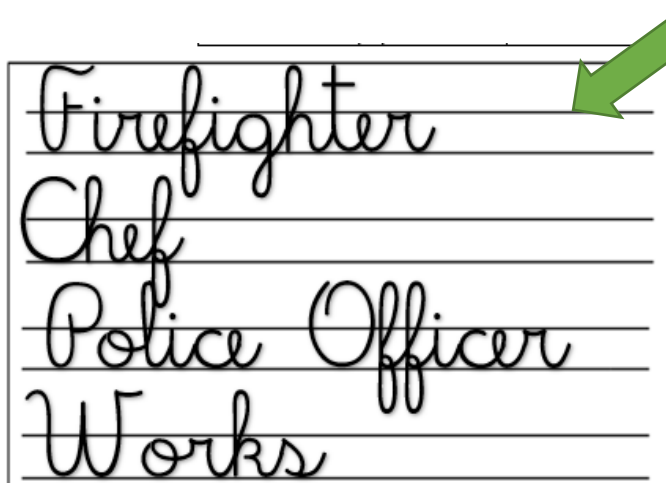 Firefighter
Chef
Police Officer
Works